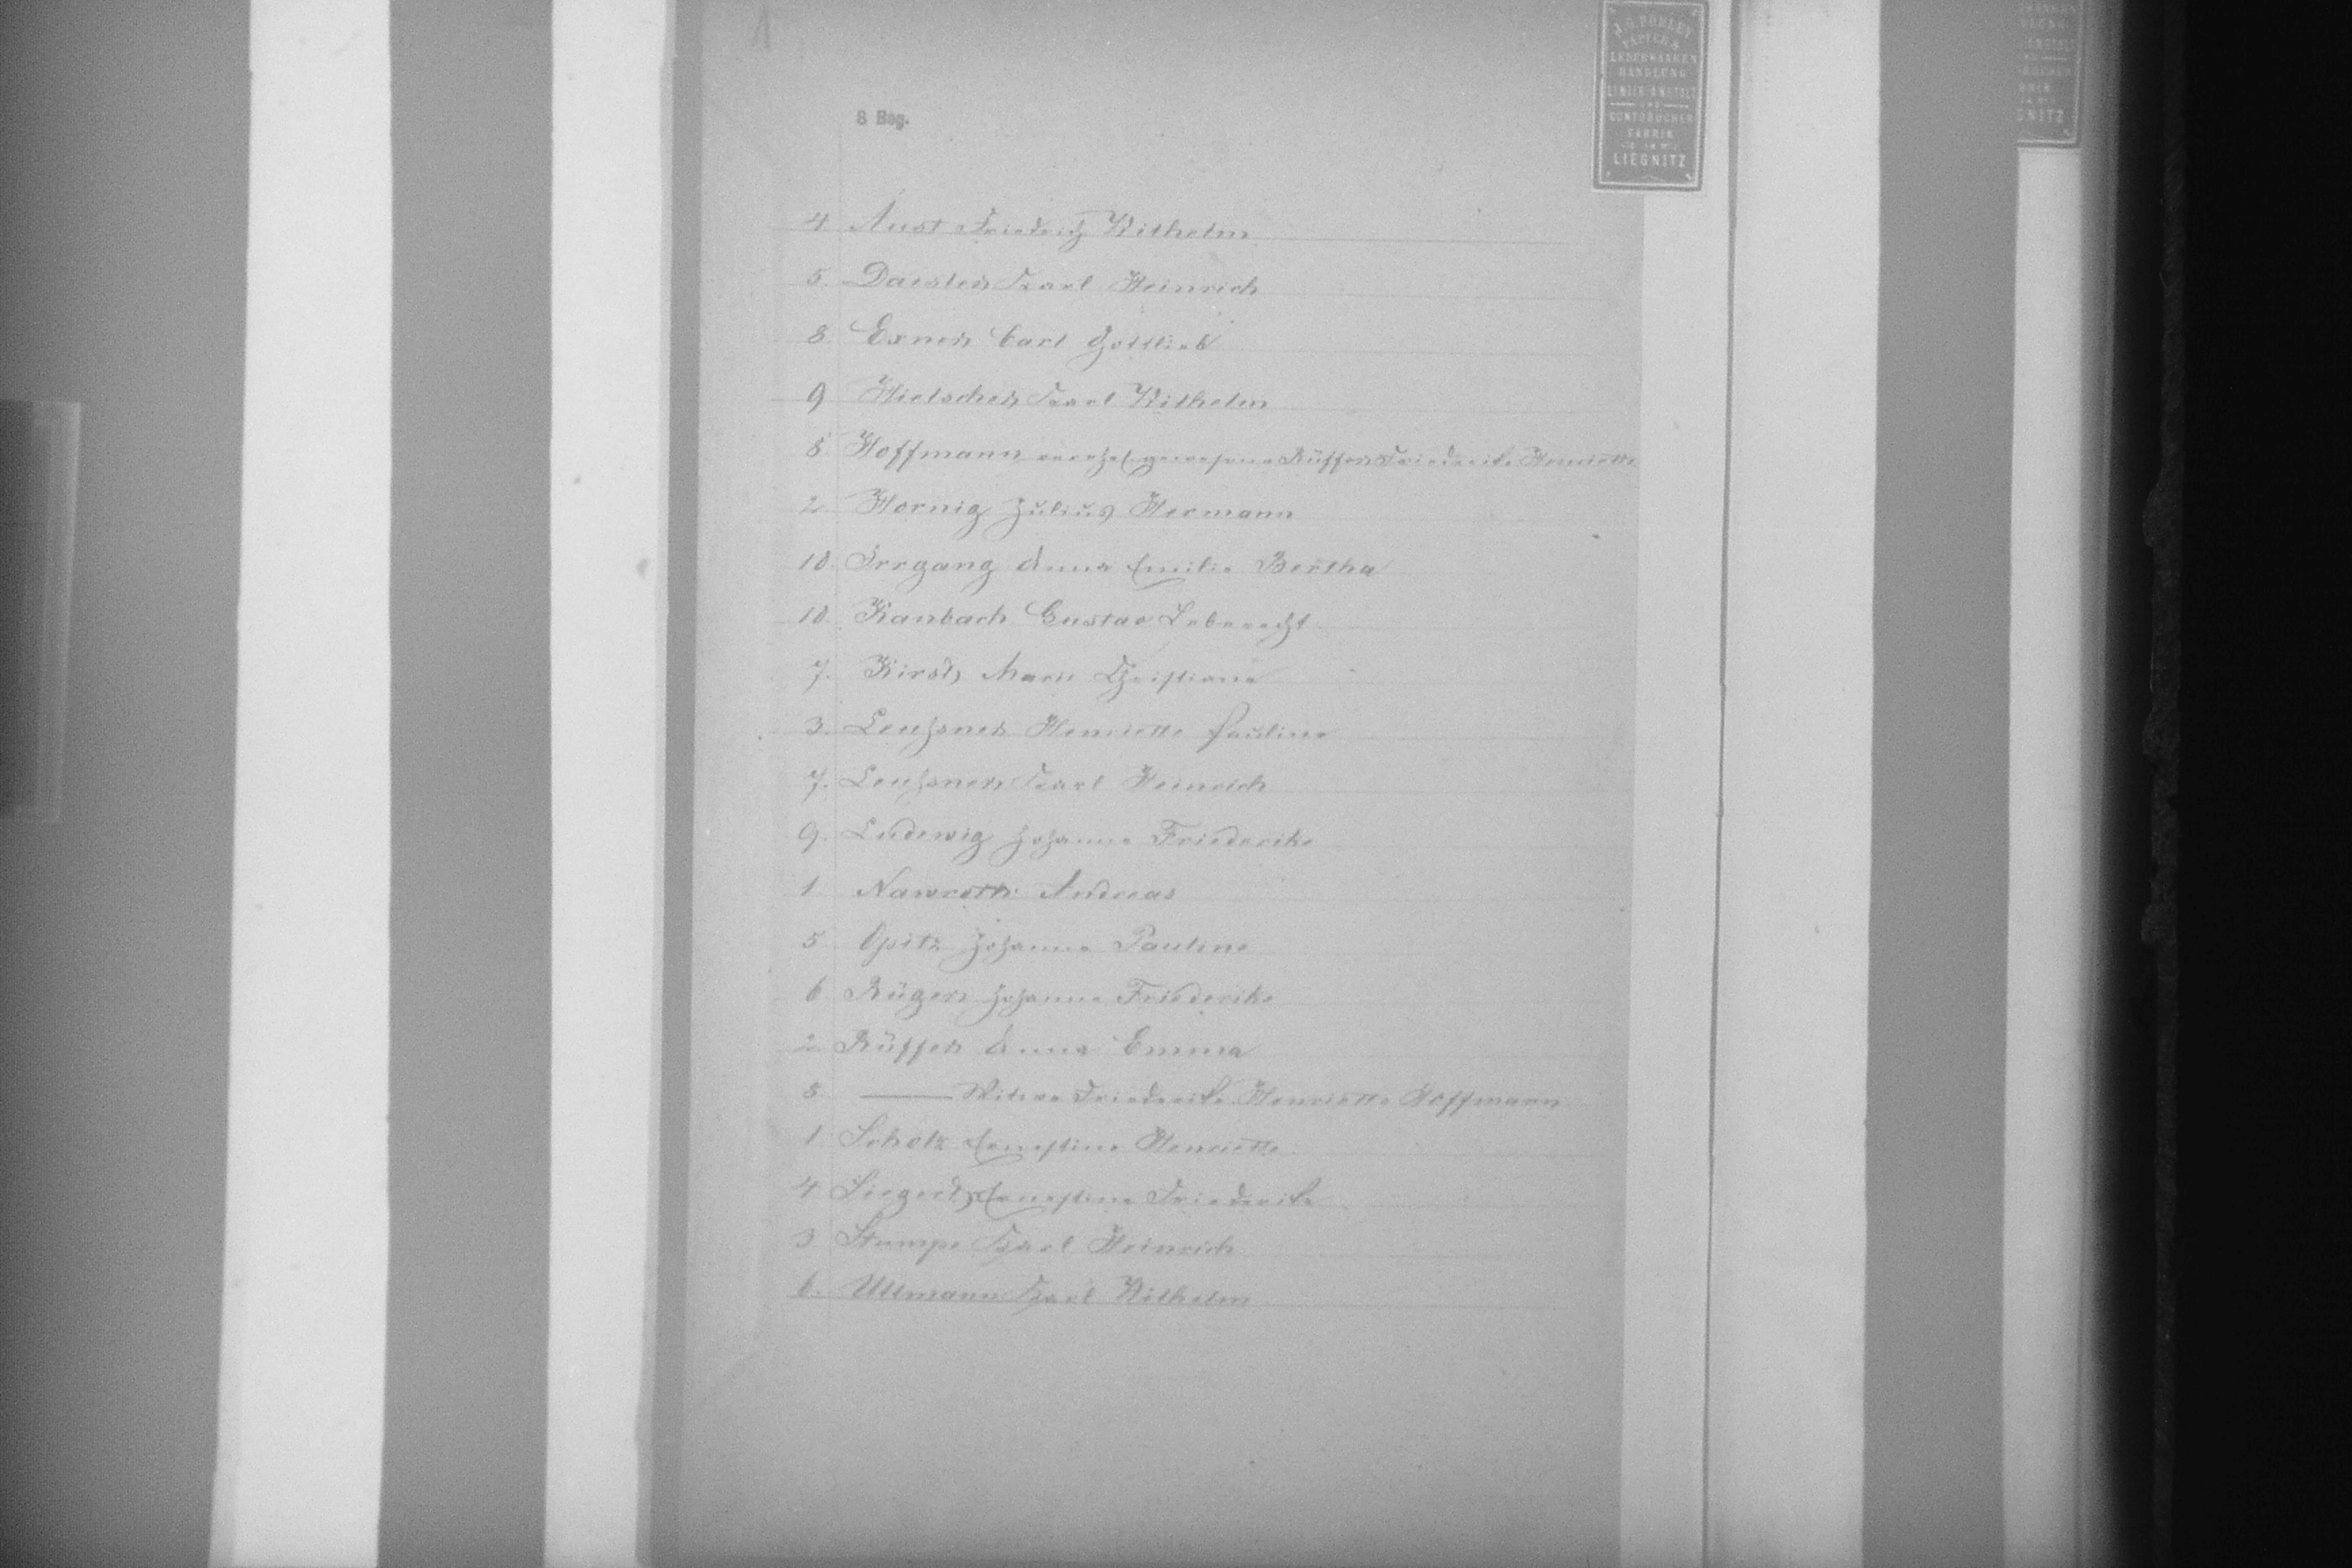 1
J. G. POHLEY
PAPIER &
LEDERWAAREN
HANDLUNG
LINIIR-ANSTALT
UND
CONTOBÜCHER
FABRIK
LIEGNITZ
8 Bog.
4 Aust Friedrich Wilhelm
5. Daester Karl Heinrich
8. Exner Carl Gottlieb
9 Hielscher Karl Wilhelm
8 Hoffmann verehel. gewesene Rüffer Friederike Henriette
2 Hornig Julius Hermann
10. Irrgang Anna Emilie Bertha
10. Kanbach Gustav Leberecht
7. Kirsch Marie Christiane
3. Leuhsner Henriette Pauline
7. Leuhsner Karl Heinrich
9. Ludewig Johanne Friederike
1. Nawroth Andreas
5. Opitz Johanne Pauline
6 Rüger Johanne Friederike
2. Rüffer Anna Emma
8 —— Witwe Friederike Henriette Hoffmann
1 Scholz Ernestine Henriette
4 Siegert Ernestine Friederike
3 Stumpe Karl Heinrich
6. Ullmann Karl Wilhelm